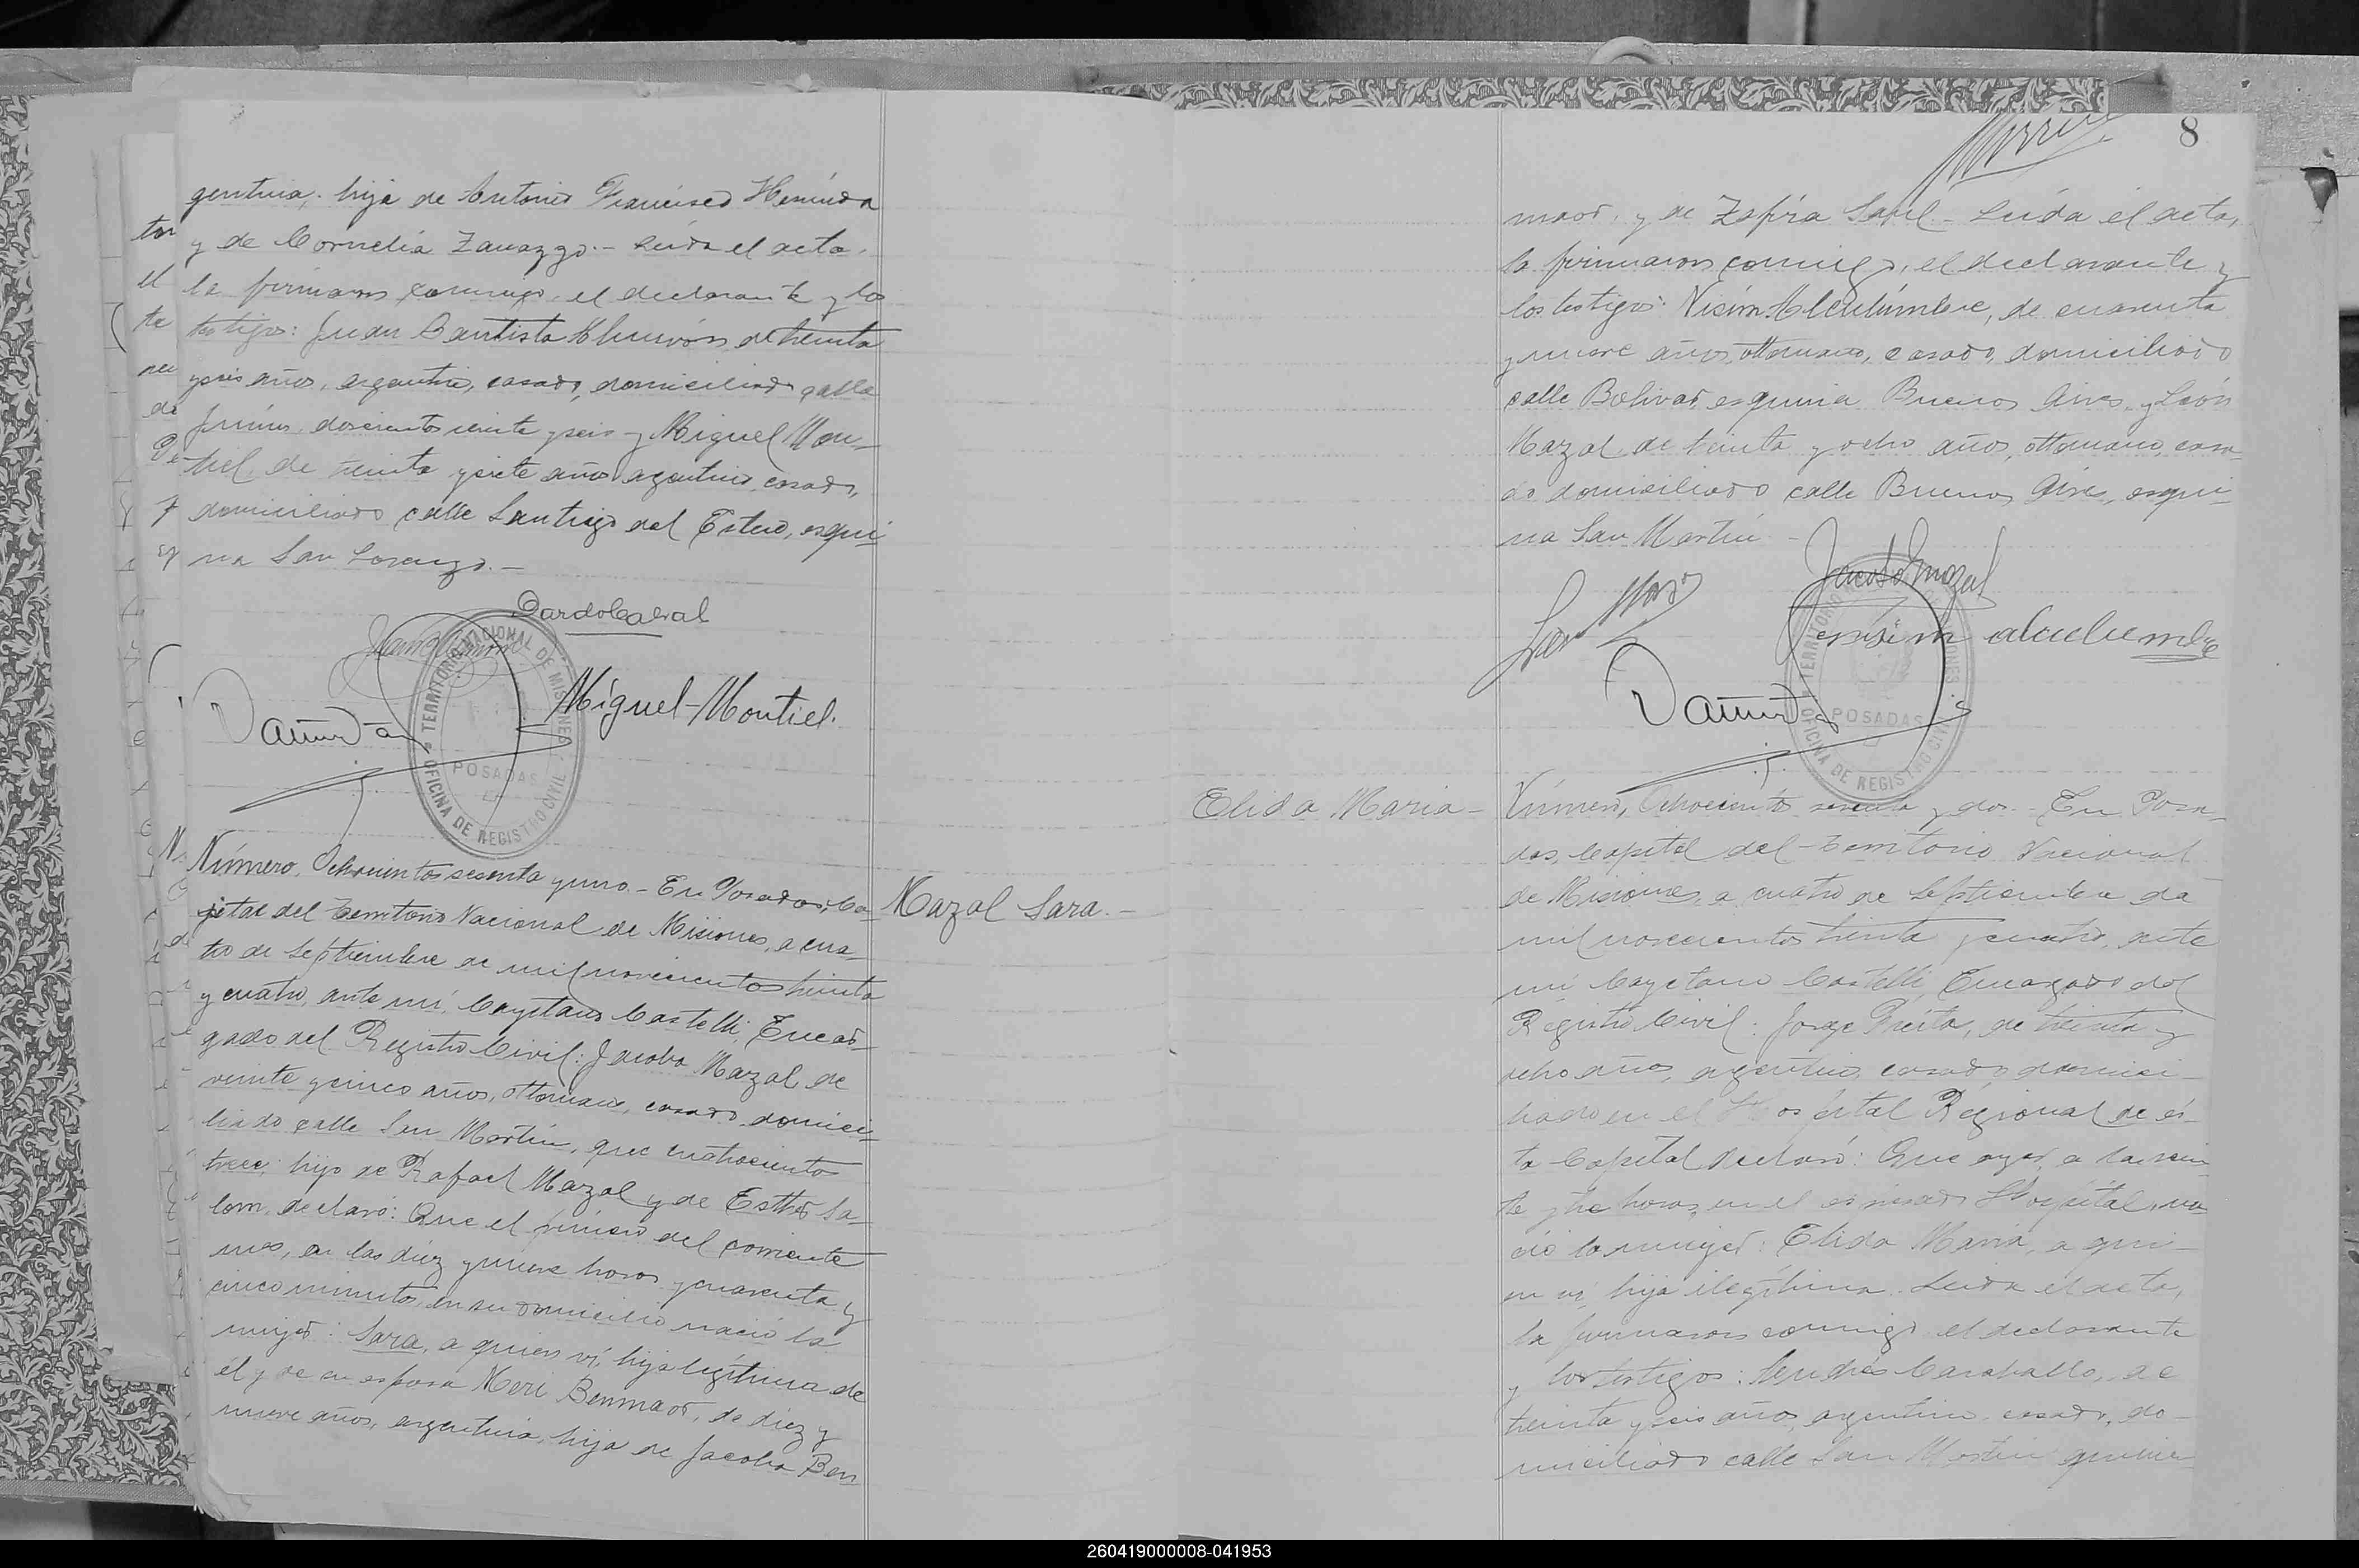 gentina, hija de Antonio Francisco Herminda
y de Cornelia Zanazzo.- Leida el acta,
la firmaron conmigo, el declarante y los
testigos: Juan Bautista de treinta
y seis años, argentino, casado, domiciliado calle
Junin, doscientos veinte y seis y Miguel Mon-
tiel, de treinta y siete años argentino, casado,
domiciliado calle Santiago del Estero, esqui-
na San Lorenzo.-
Miguel-Montiel.
TERRITORIO NACIONAL DE MISIONES
POSADAS
OFICINA DE REGISTRO CIVIL
Número, Ochocientos sesenta y uno.- En Posadas, Ca-
pital del Territorio Nacional de Misiones, a cua-
tro de Septiembre de mil novecientos treinta
y cuatro, ante mi, Cayetano Castelli, Encar-
gado del Registro Civil: Jacobo Mazal, de
veinte y cinco años, ottomano, casado, domici-
liado calle San Martin, que cuatrocientos
trece, hijo de Rafael Mazal y de Esther Sa-
lom, declaró: Que el primero del corriente
mes, en las diez y nueve horas y cuarenta y
cinco minutos, en su domicilio nació la
mujer: Sara, a quien vi, hija legítima de
él y de su esposa Meri Benmaor, de diez y
nueve años, argentina, hija de Jacobo Ben
Mazal Sara.-
8
maor, y de Zafira Saul.- Leida el acta,
la firmaron conmigo, el declarante y
los testigos: Nisim Alculumbre, de cuarenta
y nueve años, ottomano, casado, domiciliado
calle Bolivar, esquina Buenos Aires, y León
Mazal, de treinta y ocho años, ottomano, casa-
do domiciliado calle Buenos Aires, esqui-
na San Martin.-
Jacobo Mazal
nisim alculumbre
TERRITORIO
POSADAS
OFICINA DE REGISTRO CIVIL
Elida Maria-
Número, Ochocientos sesenta y dos.- En Posa-
das, Capital del Territorio Nacional
de Misiones, a cuatro de Septiembre de
mil novecientos treinta y cuatro, ante
mi Cayetano Castelli, Encargado del
Registro Civil: Jorge de treinta y
ocho años, argentino, casado, domici-
liado en el Hospital Regional de és-
ta Capital declaró: Que ayer, a las vein
te y tres horas, en el expresado Hospital, na
ció la mujer: Elida Maria, a qui-
en vi, hija ilegítima. Leida el acta,
la firmaron conmigo el declarante
y los testigos: Andrés Caraballo, de
treinta y seis años, argentino, casado, do-
miciliado calle San Martin quinien
260419000008-041953